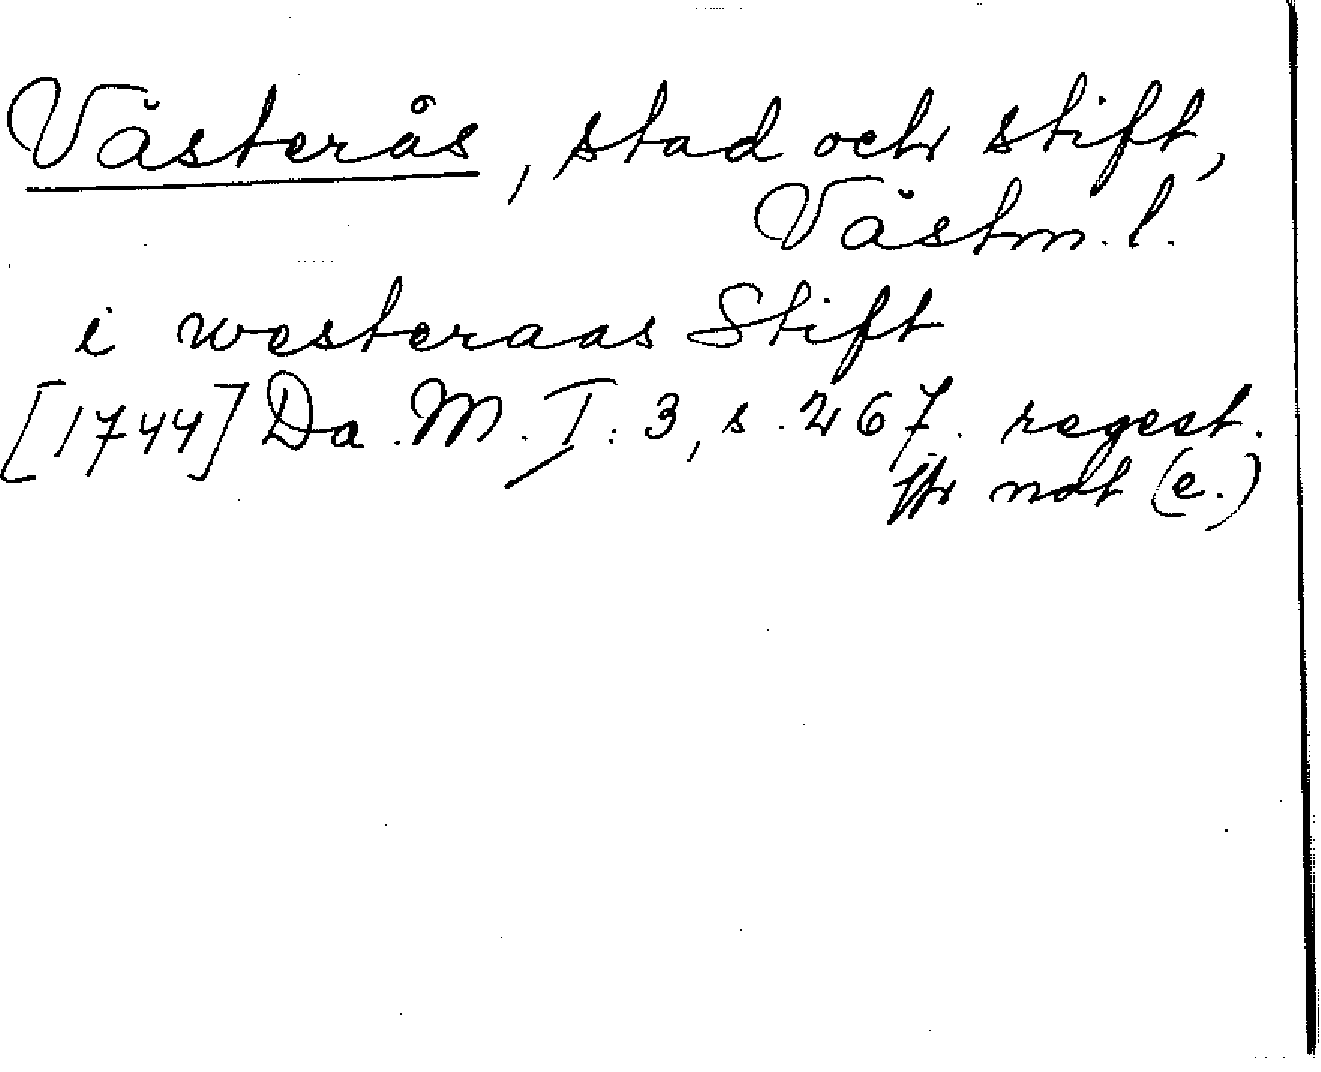 Västerås, stad och stift,
Västm. l.
i westeraas Stift
[1744] Da. M. I: 3, s. 267. regest.
not (e.)